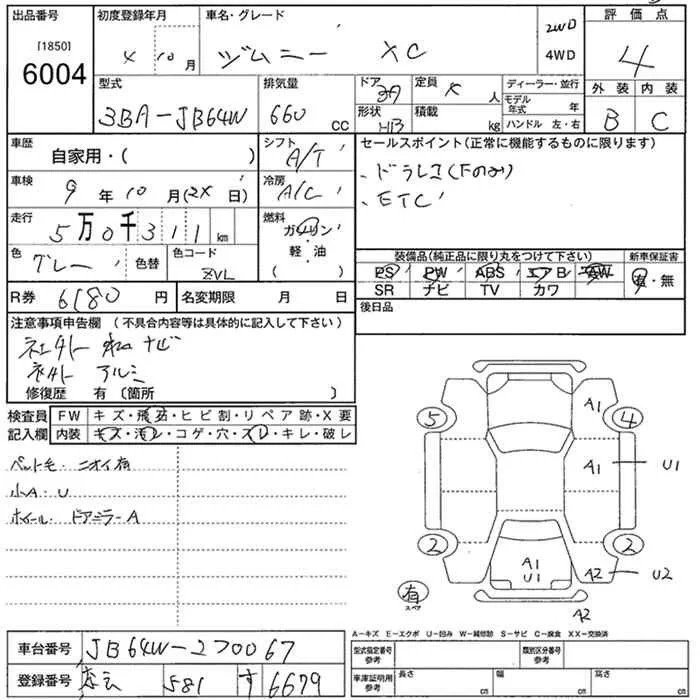 出品番号
[1850]
6004
初度登録年月
4 10 月
車名・グレード
ジムニー XC
2WD
4WD
評価点
4
外装 内装
B C
型式
3BA-JB64W
排気量
660 cc
ドア
3D
形状
HB
定員
4 人
積載 kg
ディーラー・並行
モデル年式 年
ハンドル 左・右
車歴
自家用・( )
シフト
A/T
セールスポイント(正常に機能するものに限ります)
・ドラレコ(Fのみ)
・ETC
車検
9 年 10 月 (24 日)
冷房
A/C
走行
5 万 0 千 3 1 1 km
燃料
ガソリン
・
軽・油
( )
色
グレー
色替
色コード
ZVL
装備品(純正品に限り丸をつけて下さい)
新車保証書
PS PW ABS エアB AW
SR ナビ TV カワ
有・無
R券 6180 円
名変期限 月 日
後日品
注意事項申告欄 (不具合内容等は具体的に記入して下さい)
ナビ
アルミ
修復歴 有 〔箇所 〕
検査員
記入欄
FW キズ・飛石・ヒビ割・リペア跡・X要
内装 キズ・汚レ・コゲ・穴・スレ・キレ・破レ
ペット毛・ニオイ有
小A・U
ホイール・ドアミラーA
A1
5
4
A1
U1
2
2
A1
U1
A2
U2
有
スペア
A2
A-キズ E-エクボ U-凹み W-補修跡 S-サビ C-腐食 XX-交換済
車台番号
JB64W-270067
登録番号
581 す 6679
型式指定番号
参考
類別区分番号
参考
車庫証明用
参考
長さ cm
幅 cm
高さ cm